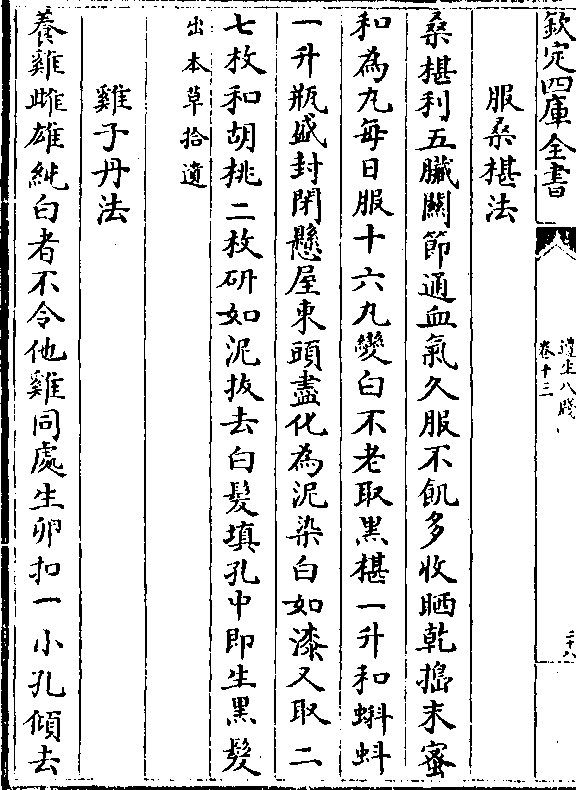 欽定四庫全書
遵生八牋
卷十三
服桑椹法
桑椹利五臟關節通血氣久服不飢多收晒乾搗末蜜
和為丸每日服十六丸變白不老取黑椹一升和蝌蚪
一升瓶盛封閉懸屋東頭盡化為泥染白如漆又取二
七枚和胡桃二枚研如泥拔去白髮填孔中即生黑髮
出本草拾遺
雞子丹法
養雞雌雄純白者不令他雞同處生卵扣一小孔傾去